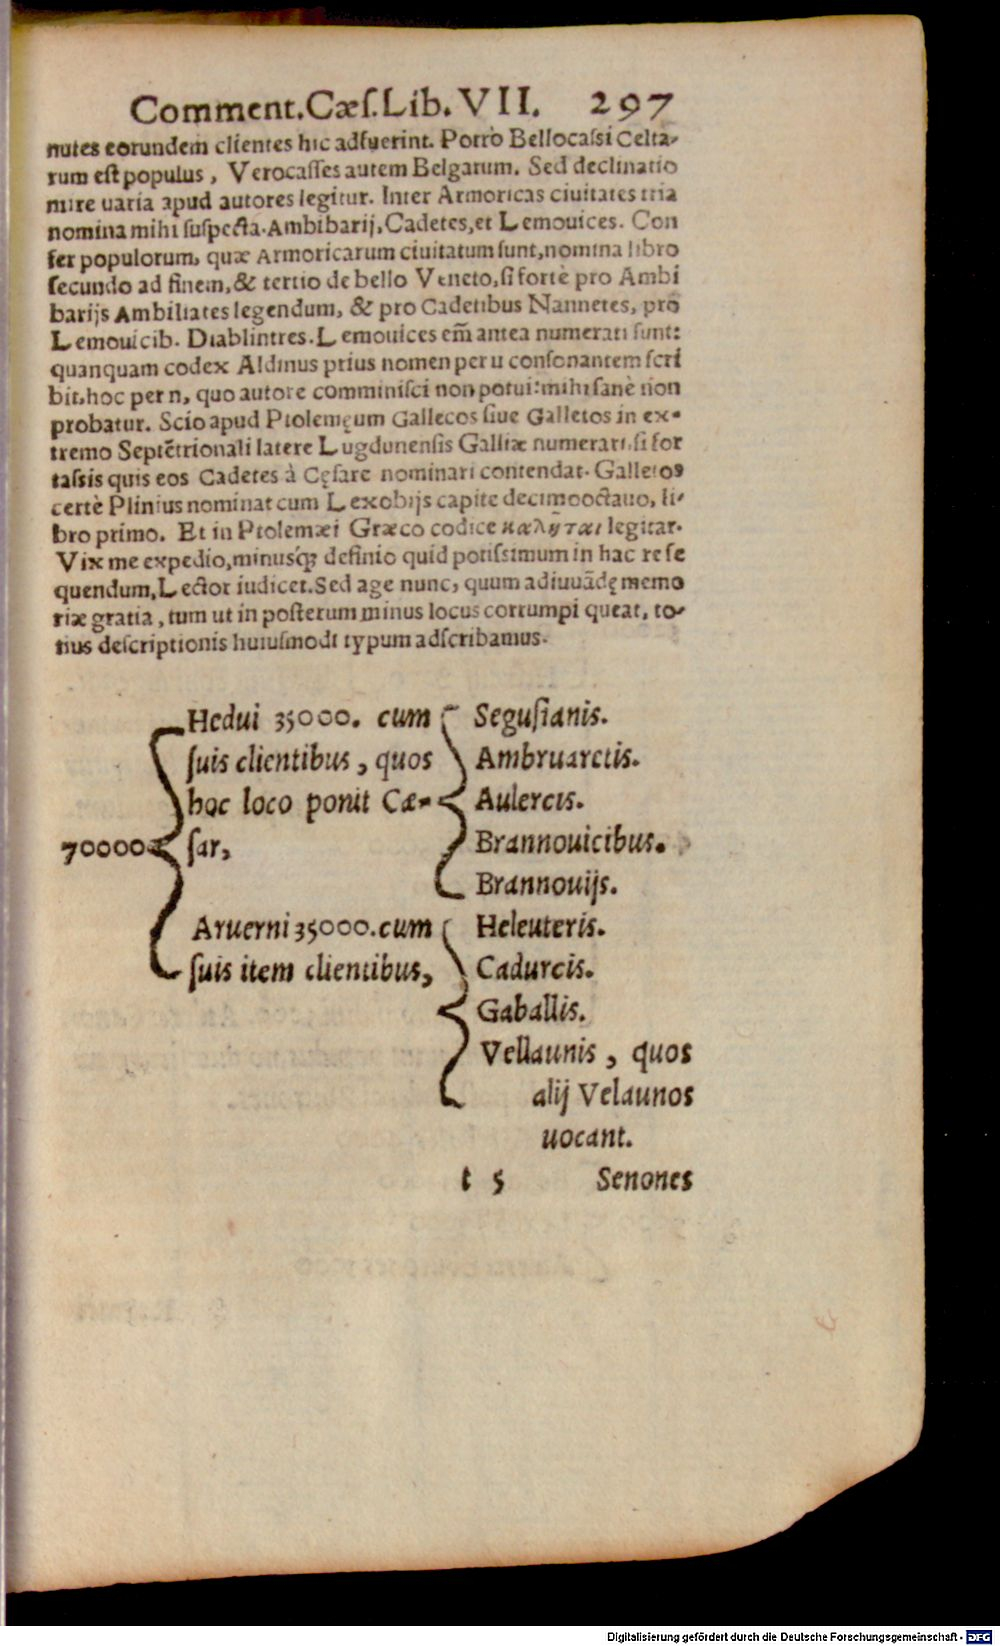 Comment.Cæſ.Lib.VII. 297
nutes eorundem clientes hic adfuerint. Porrò Bellocaſsi Celta-
rum eſt populus, Verocaſſes autem Belgarum. Sed declinatio
mire uaria apud autores legitur. Inter Armoricas ciuitates tria
nomina mihi ſuſpecta. Ambibarij, Cadetes, et Lemouices. Con
fer populorum, quæ Armoricarum ciuitatum ſunt, nomina libro
ſecundo ad finem, & tertio de bello Veneto, ſi fortè pro Ambi
barijs Ambiliates legendum, & pro Cadetibus Nannetes, pro
Lemouicib. Diablintres. Lemouices em̃ antea numerati ſunt:
quanquam codex Aldinus prius nomen per u conſonantem ſcri
bit, hoc per n, quo autore comminiſci non potui: mihi ſanè non
probatur. Scio apud Ptolemęum Gallecos ſiue Galletos in ex-
tremo Septẽtrionali latere Lugdunenſis Galliæ numerari, ſi for
taſsis quis eos Cadetes à Cęſare nominari contendat. Galletos
certè Plinius nominat cum Lexobijs capite decimooctauo, li-
bro primo. Et in Ptolemæi Græco codice καλῆται legitar.
Vix me expedio, minusq́ꝫ definio quid potiſsimum in hac re ſe
quendum, Lector iudicet. Sed age nunc, quum adiuuãdę memo
riæ gratia, tum ut in poſterum minus locus corrumpi queat, to-
tius deſcriptionis huiuſmodi typum adſcribamus.
70000
Hedui 35000. cum
ſuis clientibus, quos
hoc loco ponit Cæ-
ſar,
Seguſianis.
Ambruaretis.
Aulercis.
Brannouicibus.
Brannouijs.
Aruerni 35000. cum
ſuis item clientibus,
Heleuteris.
Cadurcis.
Gaballis.
Vellaunis, quos
alij Velaunos
uocant.
t 5 Senones
Digitalisierung gefördert durch die Deutsche Forschungsgemeinschaft - DFG